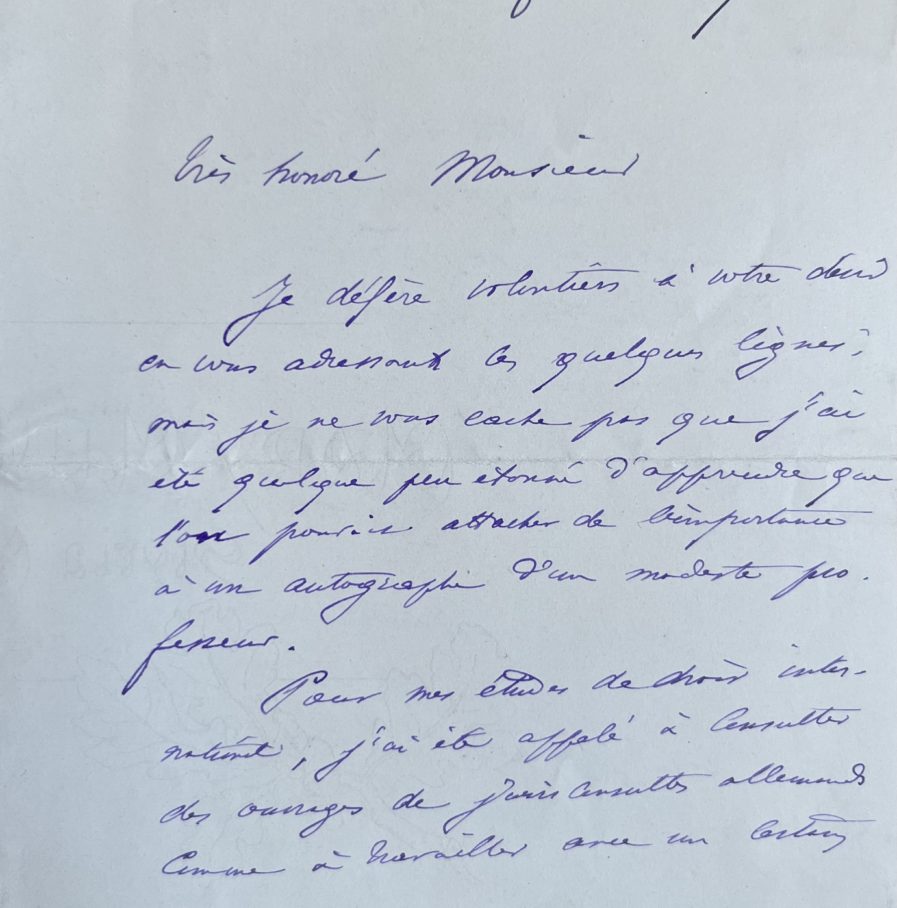 Très honoré Monsieur
Je défère volontiers à votre désir
en vous adressant ces quelques lignes;
mais je ne vous cache pas que j'ai
été quelque peu étonné d'apprendre que
l'on pouvait attacher de l'importance
à un autographe d'un modeste pro-
fesseur.
Pour mes études de droit inter-
national, j'ai été appelé à consulter
des ouvrages de jurisconsultes allemands
comme à travailler avec un certain